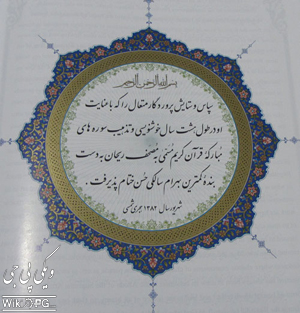 بسم الله الرحمن الرحیم
سپاس و ستایش پروردگار متعال را که با عنایت
او در طول هشت سال خوشنویسی و تذهیب سوره های
مبارکهٔ قرآن کریم مسمّی به مصحف ریحان به دست
بندهٔ کمترین بهرام سالکی حُسن ختام پذیرفت.
شهریور سال ۱۳۸۲ هجری شمسی
ویکی پی جی
WIKI PG